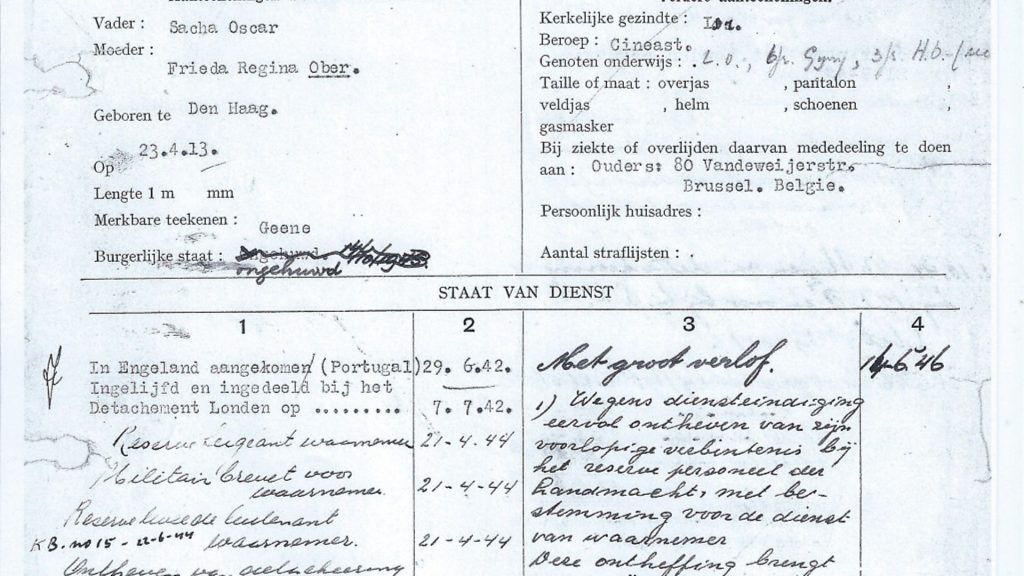 Vader : Sacha Oscar
Moeder :
Frieda Regina Ober.
Geboren te Den Haag.
Op 23.4.13.
Lengte 1 m mm
Merkbare teekenen : Geene
Burgerlijke staat :
ongehuwd
Kerkelijke gezindte :
Beroep : Cineast.
Genoten onderwijs : L.O.,
Taille of maat : overjas , pantalon ,
veldjas , helm , schoenen
gasmasker
Bij ziekte of overlijden daarvan mededeeling te doen
aan : Ouders: 80 Vandeweijerstr.
Brussel. Belgie.
Persoonlijk huisadres :
Aantal straflijsten : .
STAAT VAN DIENST
1 2 3 4
In Engeland aangekomen (Portugal) 29. 6.42.
Ingelijfd en ingedeeld bij het
Detachement Londen op .......... 7. 7.42.
Reserve sergeant waarnemer 21-4-44
Militair brevet voor
waarnemer. 21-4-44
Reserve tweede luitenant
K.B. no 15 - 22-6-44 waarnemer. 21-4-44
Ontheven van detacheering
Met groot verlof. 14-6-46
1) Wegens diensteindiging
eervol ontheven van zijn
voorlopige verbintenis bij
het reserve personeel der
Landmacht, met be-
stemming voor de dienst
van waarnemer
Deze ontheffing brengt